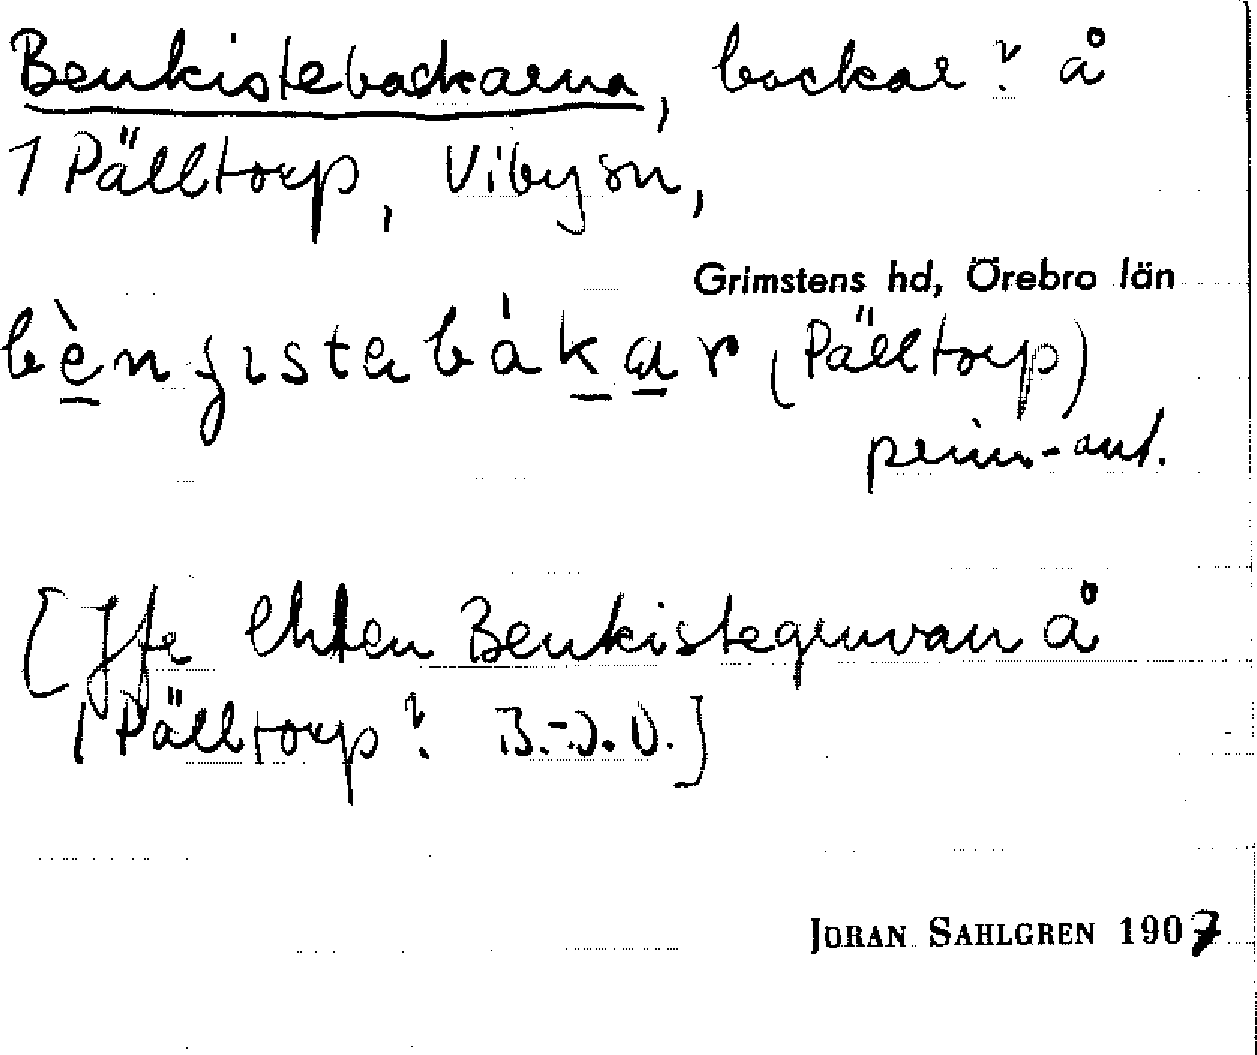 Benkistebackarna, backar? å
1 Pälltorp, Viby sn,
Grimstens hd, Örebro län
bèngistabákar (Pälltorp)
prim-ant.
[Jfr Ekten Benkistegruvan å
1 Pälltorp? B.-O.V.]
JÖRAN SAHLGREN 1907